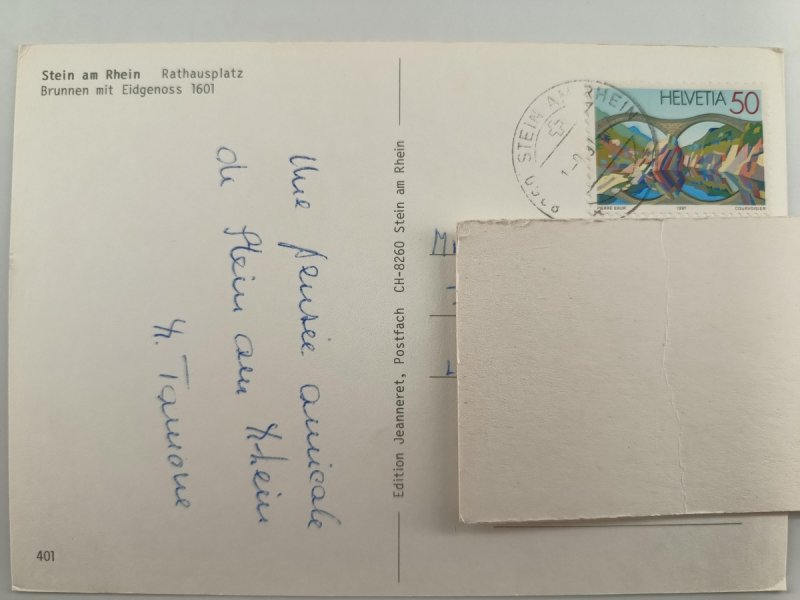 Stein am Rhein Rathausplatz
Brunnen mit Eidgenoss 1601
Une pensée amicale
de Stein am Rhein
401
Edition Jeanneret, Postfach CH-8260 Stein am Rhein
STEIN AM RHEIN
HELVETIA 50
PIERRE BAUR 1991 COURVOISIER